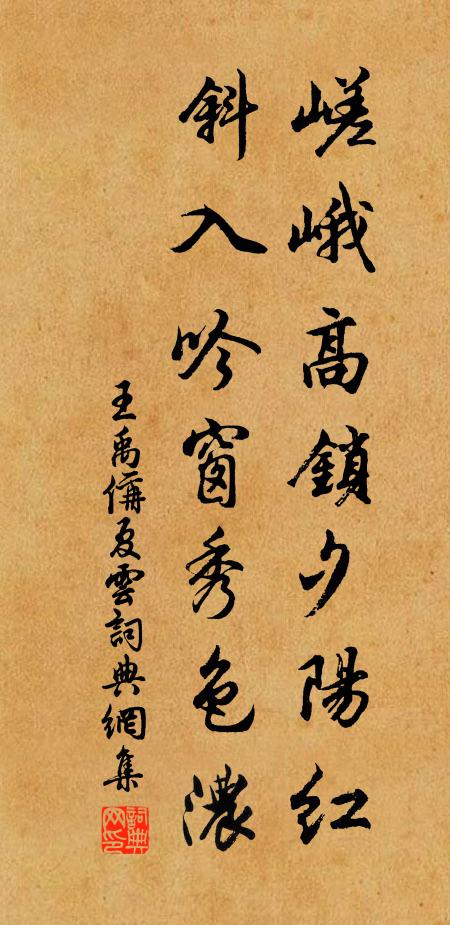 嵯峨高鎖夕陽紅
斜入吟窗秀色濃
王禹偁夏雲詞典網集
詞典
网印